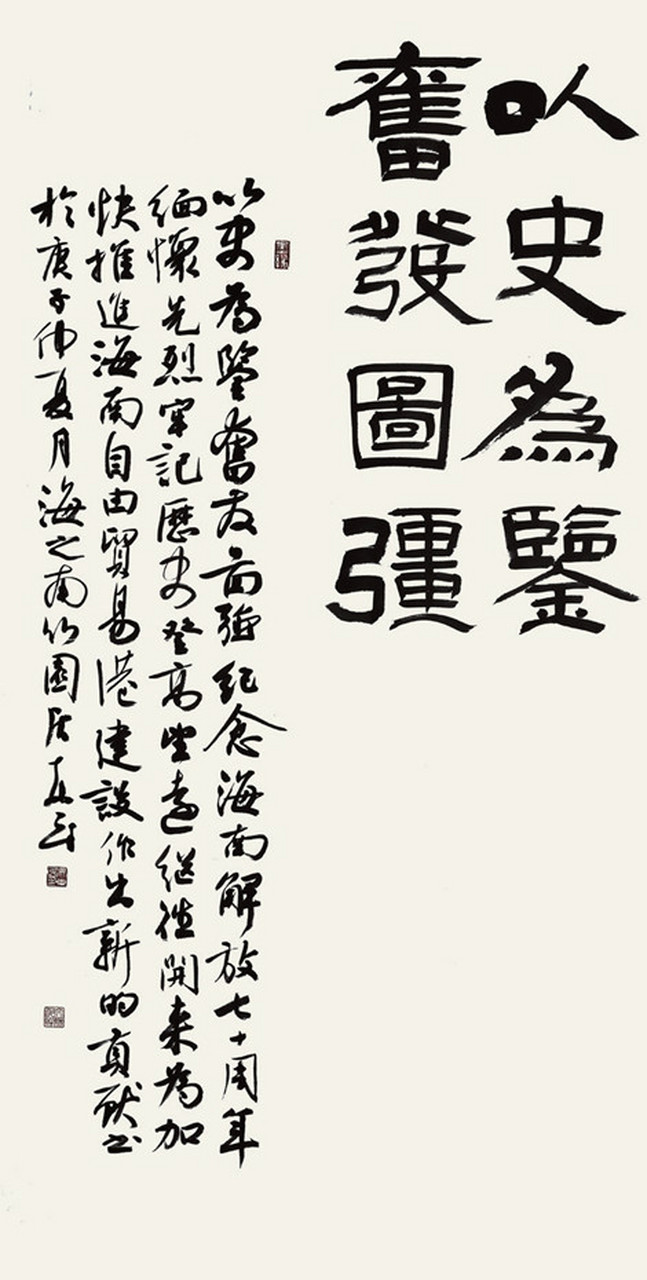 以史為鑒
奮發圖彊
以史為鑒奮发圖強紀念海南解放七十周年
緬懷先烈牢記歷史登高望遠继往開来為加
快推進海南自由貿易港建設作出新的貢獻書
於庚子仲夏月海之南竹園居